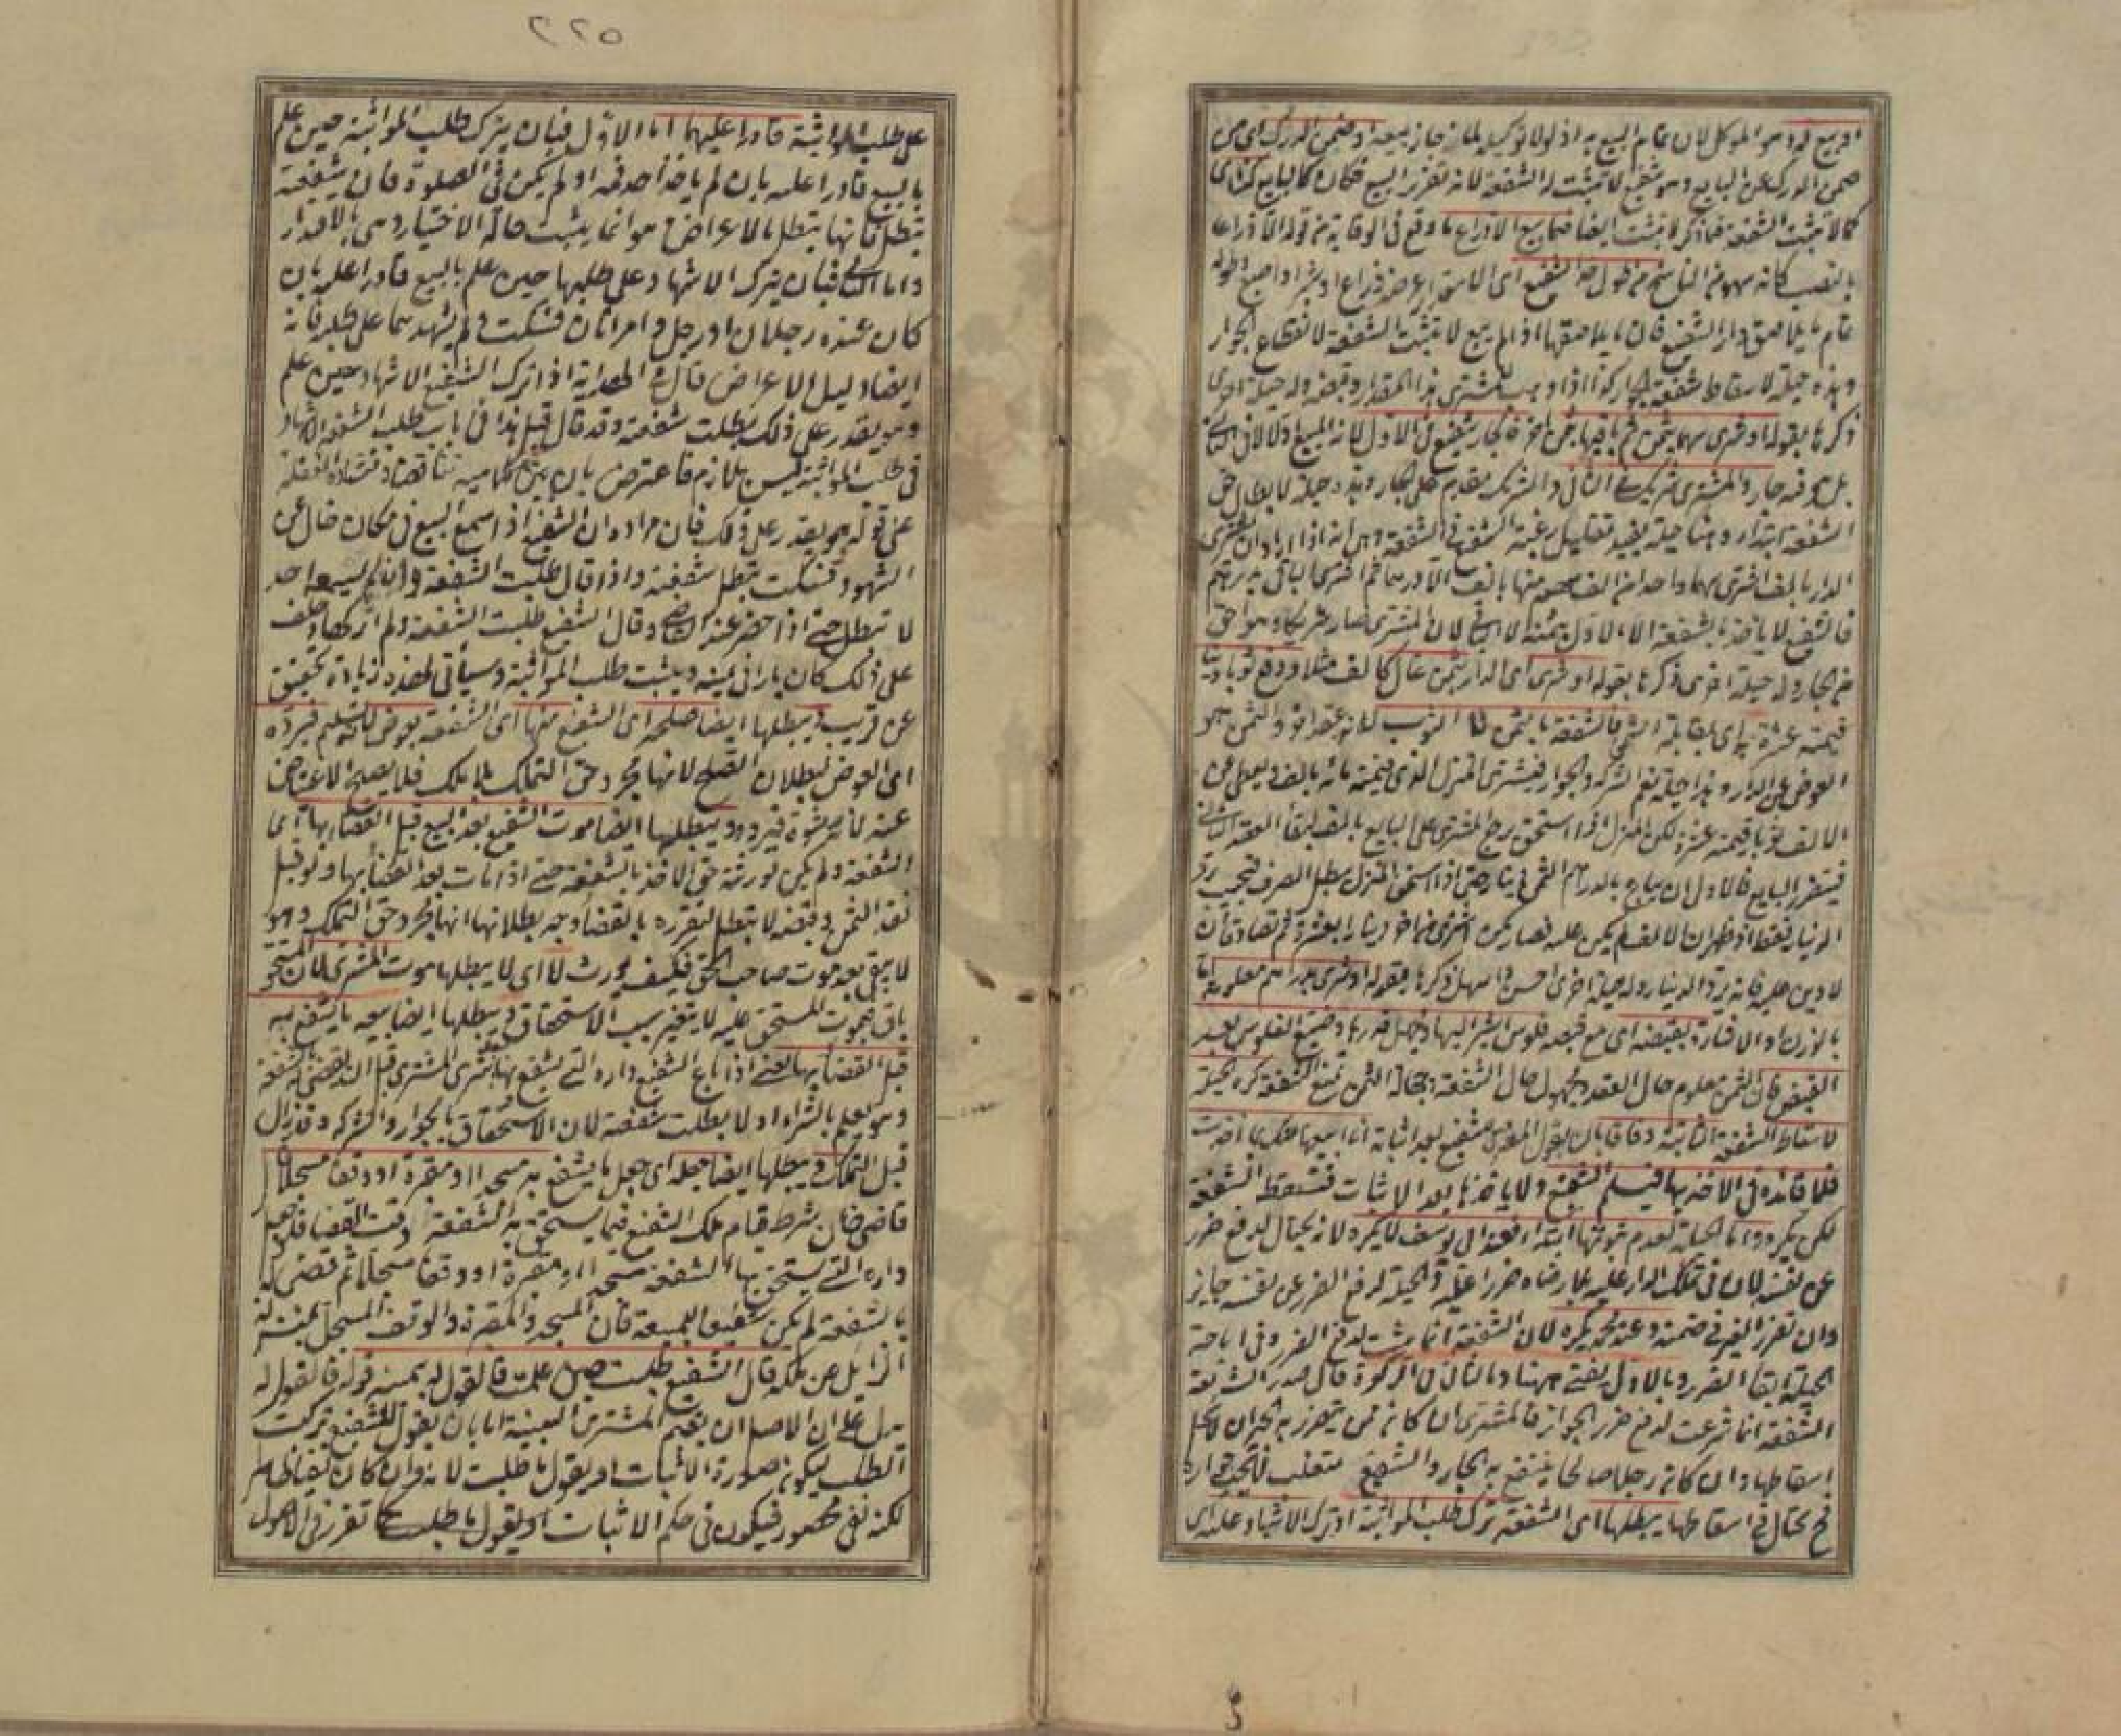 او بيع له وهو الموكل لان تمام البيع به اذ لولا توكيله لما جاز بيعه او ضمن الدرك اى من
ضمن الدرك عن البايع وهو شفيع لا تثبت له الشفعة لانه تقرير البيع فكان كالبايع كذا
كما لا تثبت الشفعة فيما ذكر لا تثبت ايضا فيما بيع الا ذراع ما وقع فى الوقاية من قوله الا ذراعا
بالنصب كانه سهو من الناسخ من طول حد الشفيع اى الا مقدار عرض ذراع او شبر او اصبع وطوله
تمام ما يلاصق دار الشفيع فان ما يلاصقها اذا لم يبع لا تثبت الشفعة لانقطاع الجوار
وهذه حيلة لاسقاط شفعة الجار كذا اذا وهب للمشترى هذا المقدار وقبضه وله حيلة اخرى
ذكرها بقوله او شرى سهما بثمن ثم باقيها بثمن اخر فالجار شفيع فى الاول لانه المبيع اولا لا فى الثانى
بل هو فيه جار والمشترى شريك فى الثانى والشريك يقدم على الجار وهذه حيلة لابطال حق
الشفعة ابتداء وهنا حيلة يفيد تقليل رغبة الشفيع فى الشفعة وهى انه اذا اراد ان يشترى
الدار بالف اشترى سهما واحدا من الف سهم منها بالف الا درهما ثم اشترى الباقى بدرهم
فالشفيع لا ياخذ بالشفعة الا الاول بثمنه لا الثانى لان المشترى صار شريكا وهو احق
من الجار وله حيلة اخرى ذكرها بقوله او شرى اى الدار بثمن غال كالف مثلا ودفع ثوبا
قيمته عشرة به اى بمقابلة الثمن فالشفعة بالثمن لا الثوب لانه عقد اخر والثمن هو
العوض عن الدار وهذا حيلة تعم الشركة والجوار فيشترى المنزل الذى قيمته مائة بالف ويعطى عن
الالف ثوبا قيمته عشرة لكن المنزل اذا استحق يرجع المشترى على البايع بالف لبقاء العقد الثانى
فيتضرر البايع فالاولى ان يباع بالدراهم الثمن دينار حتى اذا استحق المنزل يبطل الصرف فيجب رد
الدينار فقط اذ ظهر ان الالف لم يكن عليه فصار كمن اشترى من اخر دينارا بعشرة ثم تصادقا ان
لا دين عليه فانه يرد الدينار وله حيلة اخرى احسن واسهل ذكرها بقوله او شرى بدراهم معلومة اما
بالوزن او الاشارة بقبضة اى مع قبضة فلوس اشير اليها وجهل قدرها وضيع الفلوس بعد
القبض فان الثمن معلوم حال العقد ومجهول حال الشفعة وجهالة الثمن تمنع الشفعة كره الحيلة
لاسقاط الشفعة الثابتة وفاقا بان يقول المشترى للشفيع بعد اثباته انا ابيعها منك بما اخذت
فلا فائدة فى الاخذ بها فيسلم الشفيع ولا ياخذها بعد الاثبات فتسقط الشفعة
لكن يكره واما الحيلة لعدم ثبوتها ابتداء فعند ابى يوسف لا يكره لانه يحتال لدفع ضرر
عن نفسه لان فى تملك الدار عليه بلا رضاه ضررا عليه والحيلة لدفع الضرر عن نفسه جايز
وان تضرر الغير فى ضمنه وعند محمد يكره لان الشفعة انما شرعت لدفع الضرر وفى اباحة
الحيلة ابقاء الضرر وبالاول يفتى ههنا وبالثانى فى الزكوة قال صدر الشريعة
الشفعة انما شرعت لدفع ضرر الجوار فالمشترى ان كان ممن يتضرر به الجيران لا يحل
اسقاطها وان كان رجلا صالحا ينتفع به الجار والشفيع متعنت لا يحب جواره
فح يحتال فى اسقاطها يبطلها اى الشفعة ترك طلب المواثبة او ترك الاشهاد عليه اى
٢٢٥
على طلب المواثبة قادرا عليهما اما الاول فبان يترك طلب المواثبة حين علم
بالبيع قادرا عليه بان لم ياخذ احد فمه او لم يكن فى الصلوة فان شفعته
تبطل فانها تبطل بالاعراض وهو انما يثبت حالة الاختيار وهى بالاقدار
واما الثانى فبان يترك الاشهاد على طلبها حين علم بالبيع قادرا عليه بان
كان عنده رجلان او رجل وامراتان فسكت ولم يشهدهما على طلبه فانه
ايضا دليل الاعراض قال فى الهداية اذا ترك الشفيع الاشهاد حين علم
وهو يقدر على ذلك بطلت شفعته وقد قال قبل هذا فى باب طلب الشفعة الاشهاد
فى طلب المواثبة ليس بلازم فاعترض بان بين كلاميه تناقضا ومنشاؤه الغفلة
عن قوله وهو يقدر على ذلك فان مراده ان الشفيع اذا سمع البيع فى مكان خال عن
الشهود فسكت تبطل شفعته واذا قال طلبت الشفعة وان لم يسمعه احد
لا تبطل حتى اذا حضر عند القاضى وقال الشفيع طلبت الشفعة ولم اتركها وحلف
على ذلك كان بارا فى يمينه ويثبت طلب المواثبة وسياتى لهذه زيادة تحقيق
عن قريب ويبطلها ايضا صلحه اى الشفيع منها اى الشفعة بعوض للتسليم فيرده
اى العوض لبطلان الصلح لانها مجرد حق التملك بلا ملك فلا يصلح الاعتياض
عنه لانه رشوة فيرد ويبطلها ايضا موت الشفيع بعد البيع قبل القضاء بها اى
الشفعة ولم يكن لورثته حق الاخذ بالشفعة حتى اذا مات بعد القضاء بها ولو قبل
نقد الثمن وقبضه لا تبطل لتقرره بالقضاء وجه بطلانها انها مجرد حق التملك وهو
لا يبقى بعد موت صاحب الحق فكيف يورث لا اى لا يبطلها موت المشترى لان المستحق
باق وبموت المستحق عليه لا يتغير سبب الاستحقاق ويبطلها ايضا بيعه ما يشفع به
قبل القضاء بها يعنى اذا باع الشفيع داره التى يشفع بها لشرى المشترى قبل ان يقضى له بالشفعة
وهو يعلم بالشراء او لا بطلت شفعته لان الاستحقاق بالجوار والشركة وقد زال
قبل التملك ويبطلها ايضا جعله اى جعل ما يشفع به مسجدا او مقبرة او وقفا مسجلا
قاضى خان بشرط قيام ملك الشفيع فيما يستحق به الشفعة وقت القضاء فلو جعل
داره التى يستحق بها الشفعة مسجدا او مقبرة او وقفا مسجلا ثم قضى له
بالشفعة لم يكن شفيعا للمبيعة فان المسجد والمقبرة والوقف المسجل بمنزلة
الزايل عن ملكه قال الشفيع طلبت حين علمت فالقول له بيمينه قوله فالقول له
يدل على ان الاصل ان يقيم المشترى البينة اما بان يقول للشفيع تركت
الطلب ليكون صورة الاثبات او يقول ما طلبت لانه وان كان نفيا ظاهرا
لكنه نفى محصور فيكون فى حكم الاثبات او يقول ما طلبت كما تقرر فى الاصول